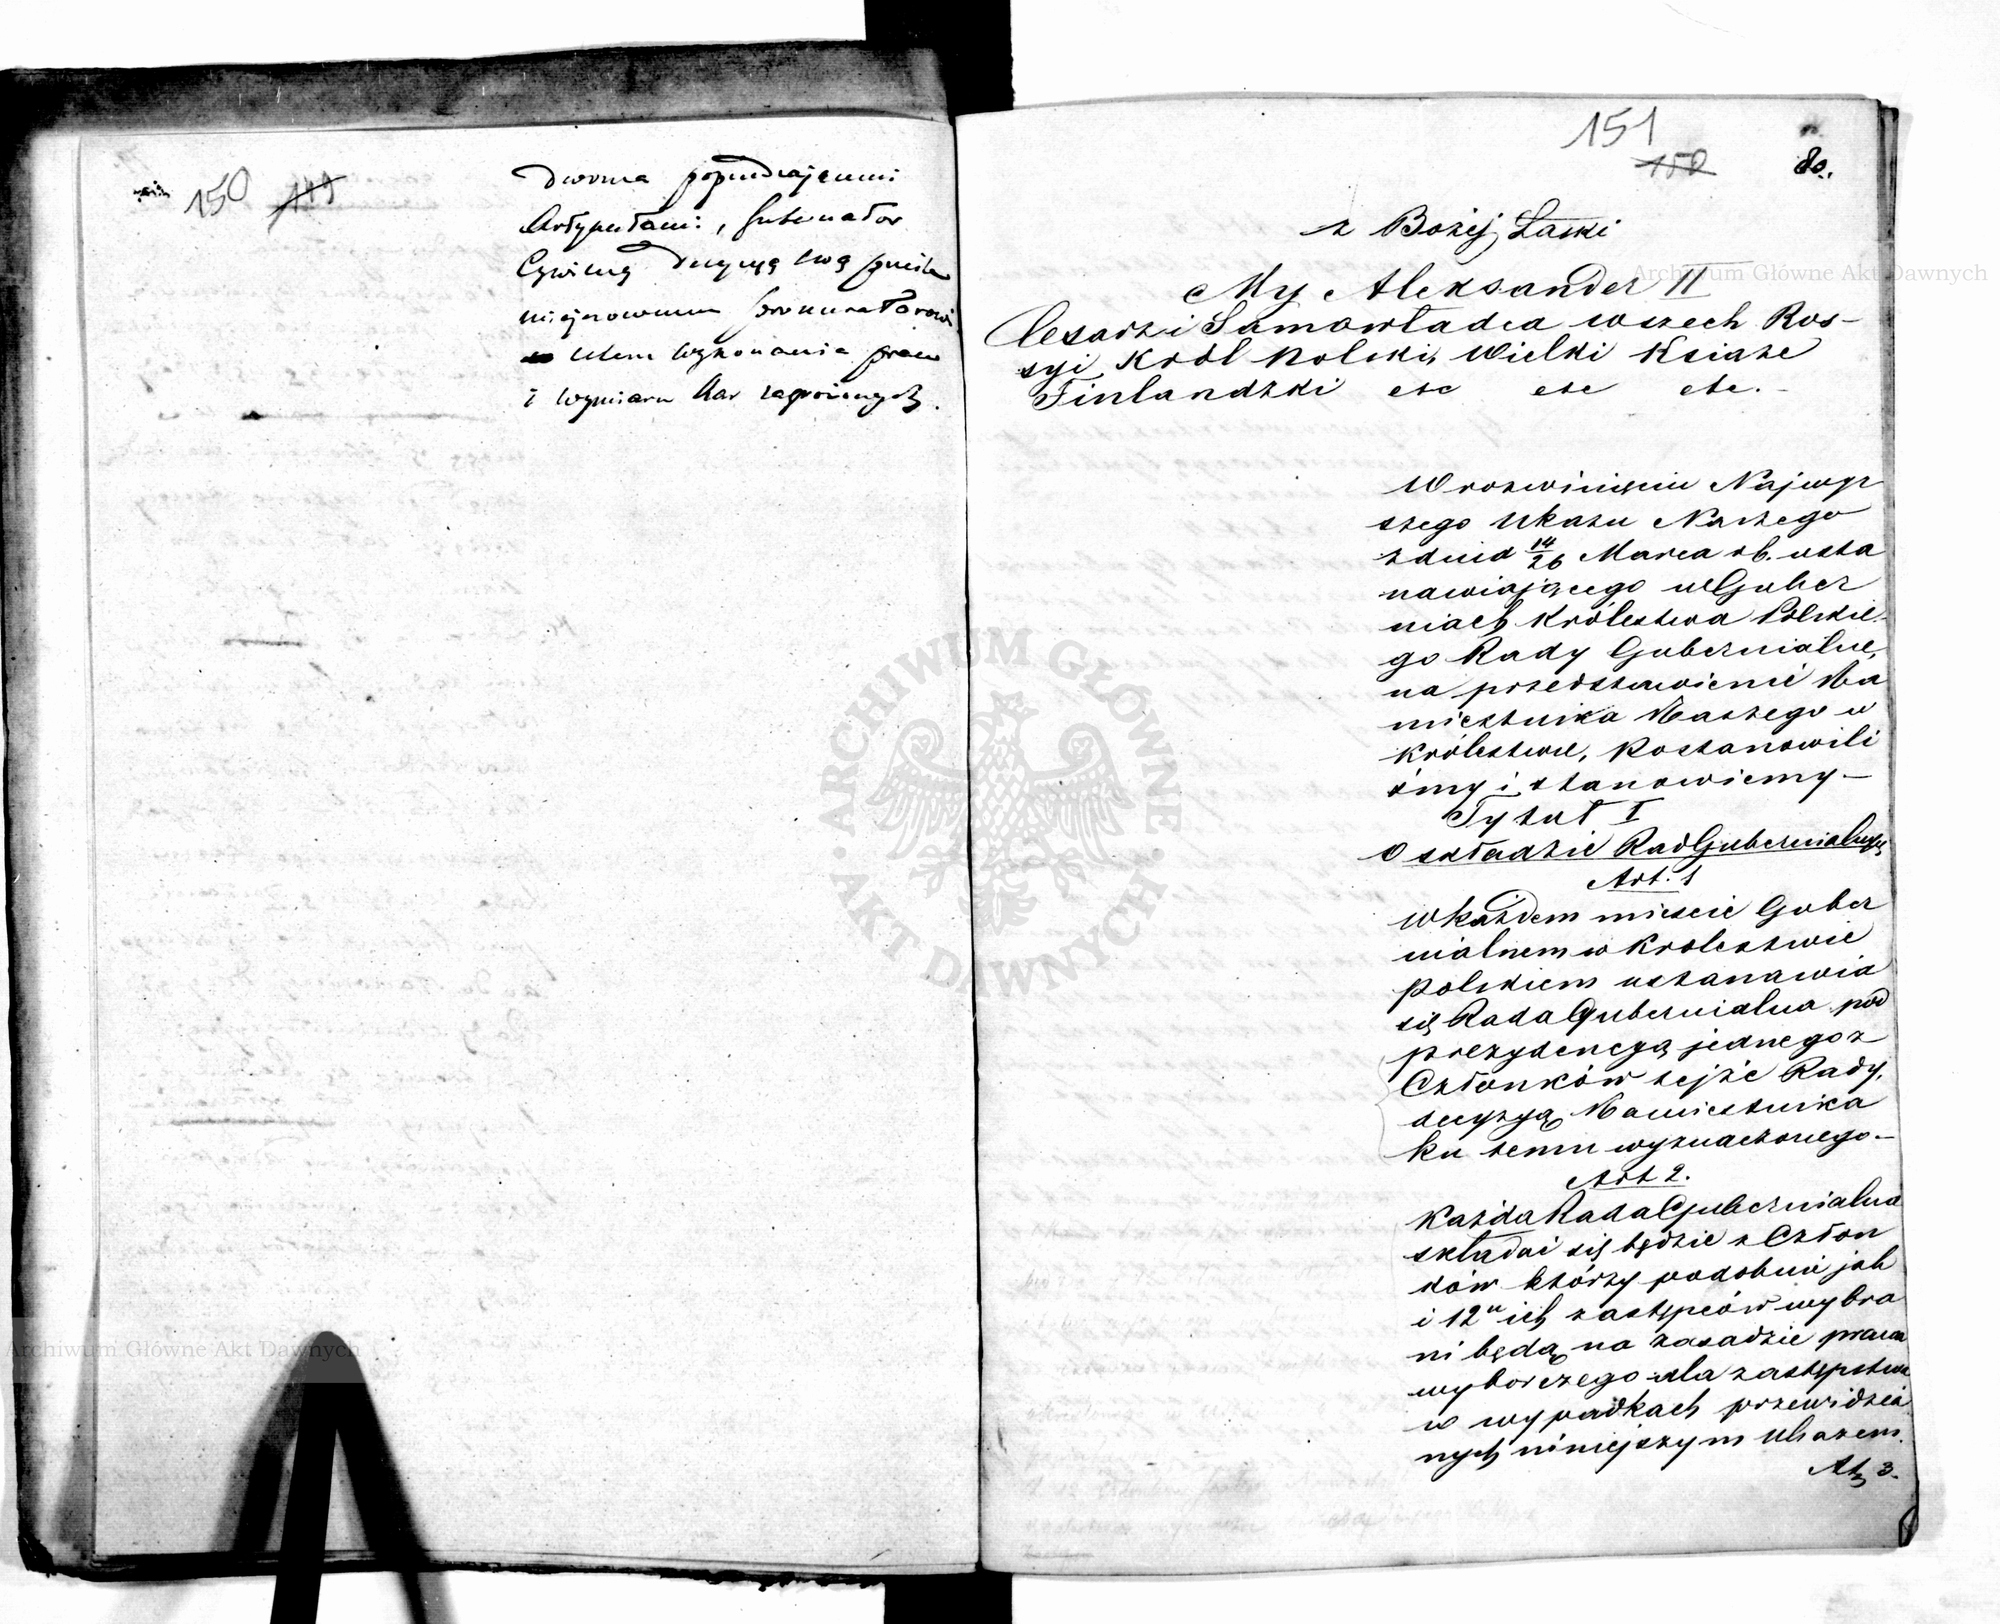 150 149
Dwoma poprzedzającemi
Artykułami, Gubernator
Cywilny decyzyę swą prześle
miejscowemu prokuratorowi
celem wykonania prawa
i wymiaru kar zagrożonych.
151
152
80.
z Bożej Łaski
My Aleksander II
Cesarz i Samowładca wszech Ros-
syi, Król Polski, Wielki Książe
Finlandzki etc etc etc.-
W rozwinięciu Najwyż
szego Ukazu Naszego
z dnia 14/26 Marca rb. usta
nawiającego w Guber
niach Królestwa Polskie-
go Rady Gubernialne,
na przedstawienie Na
miestnika Naszego w
Królestwie, Postanowili
śmy i stanowiemy —
Tytuł I
O składzie Rad Gubernialnych
Art. 1
W każdem mieście Guber
nialnem w Krolestwie
Polskiem ustanawia
się Rada Gubernialna pod
prezydencyą jednego z
Członków tejże Rady,
decyzyą Namiestnika
ku temu wyznaczonego.—
Art 2.
Każda Rada Gubernialna
składać się będzie z Człon
ków którzy podobnie jak
i 12u ich zastępców wybra
ni będą na zasadzie prawa
wyborczego dla zastępstwa
w wypadkach przewidzia
nych niniejszym Ukazem.
Art 3.
Archiwum Główne Akt Dawnych
Archiwum Główne Akt Dawnych
ARCHIWUM GŁÓWNE • AKT DAWNYCH •